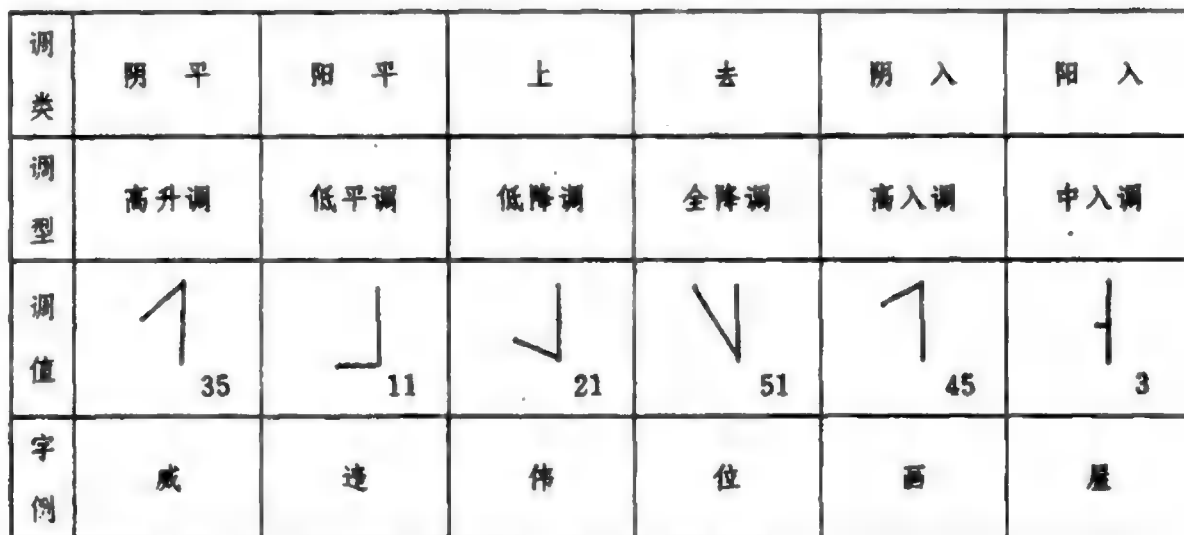 调类 阴平 阳平 上 去 阴入 阳入
调型 高升调 低平调 低降调 全降调 高入调 中入调
调值 35 11 21 51 45 3
字例 威 违 伟 位 画 屋